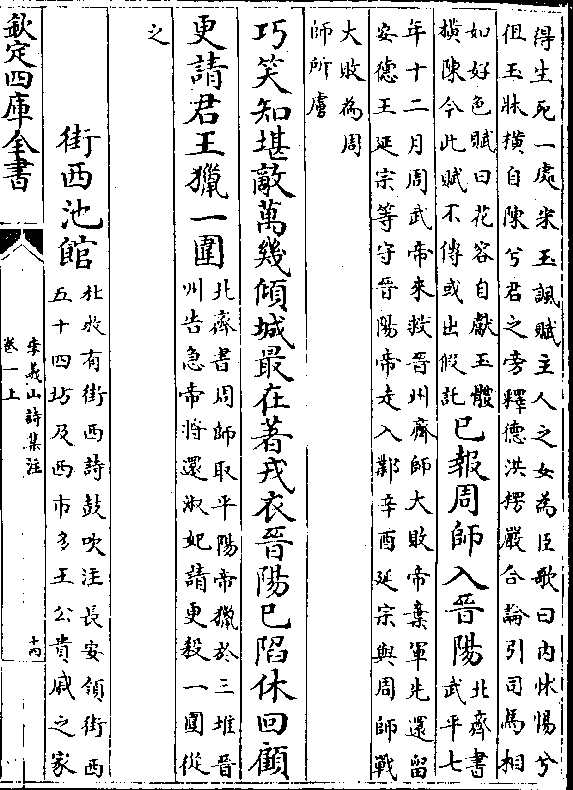 得生死一處宋玉諷賦主人之女為臣歌曰内怵惕兮
徂玉牀横自陳兮君之旁釋德洪楞嚴合論引司馬相
如好色賦曰花容自獻玉體
横陳今此賦不傳或出假託
已報周師入晉陽
北齊書
武平七
年十二月周武帝來救晉州齊師大敗帝棄軍先還留
安德王延宗等守晉陽帝走入鄴辛酉延宗與周師戰
大敗為周
師所虜
巧笑知堪敵萬幾傾城最在著戎衣晉陽已陷休回顧
更請君王獵一圍
北齊書周師取平陽帝獵於三堆晉
州告急帝將還淑妃請更殺一圍從
之
街西池館
杜牧有街西詩鼓吹注長安領街西
五十四坊及西市多王公貴戚之家
欽定四庫全書
李義山詩集注
卷一上
十六